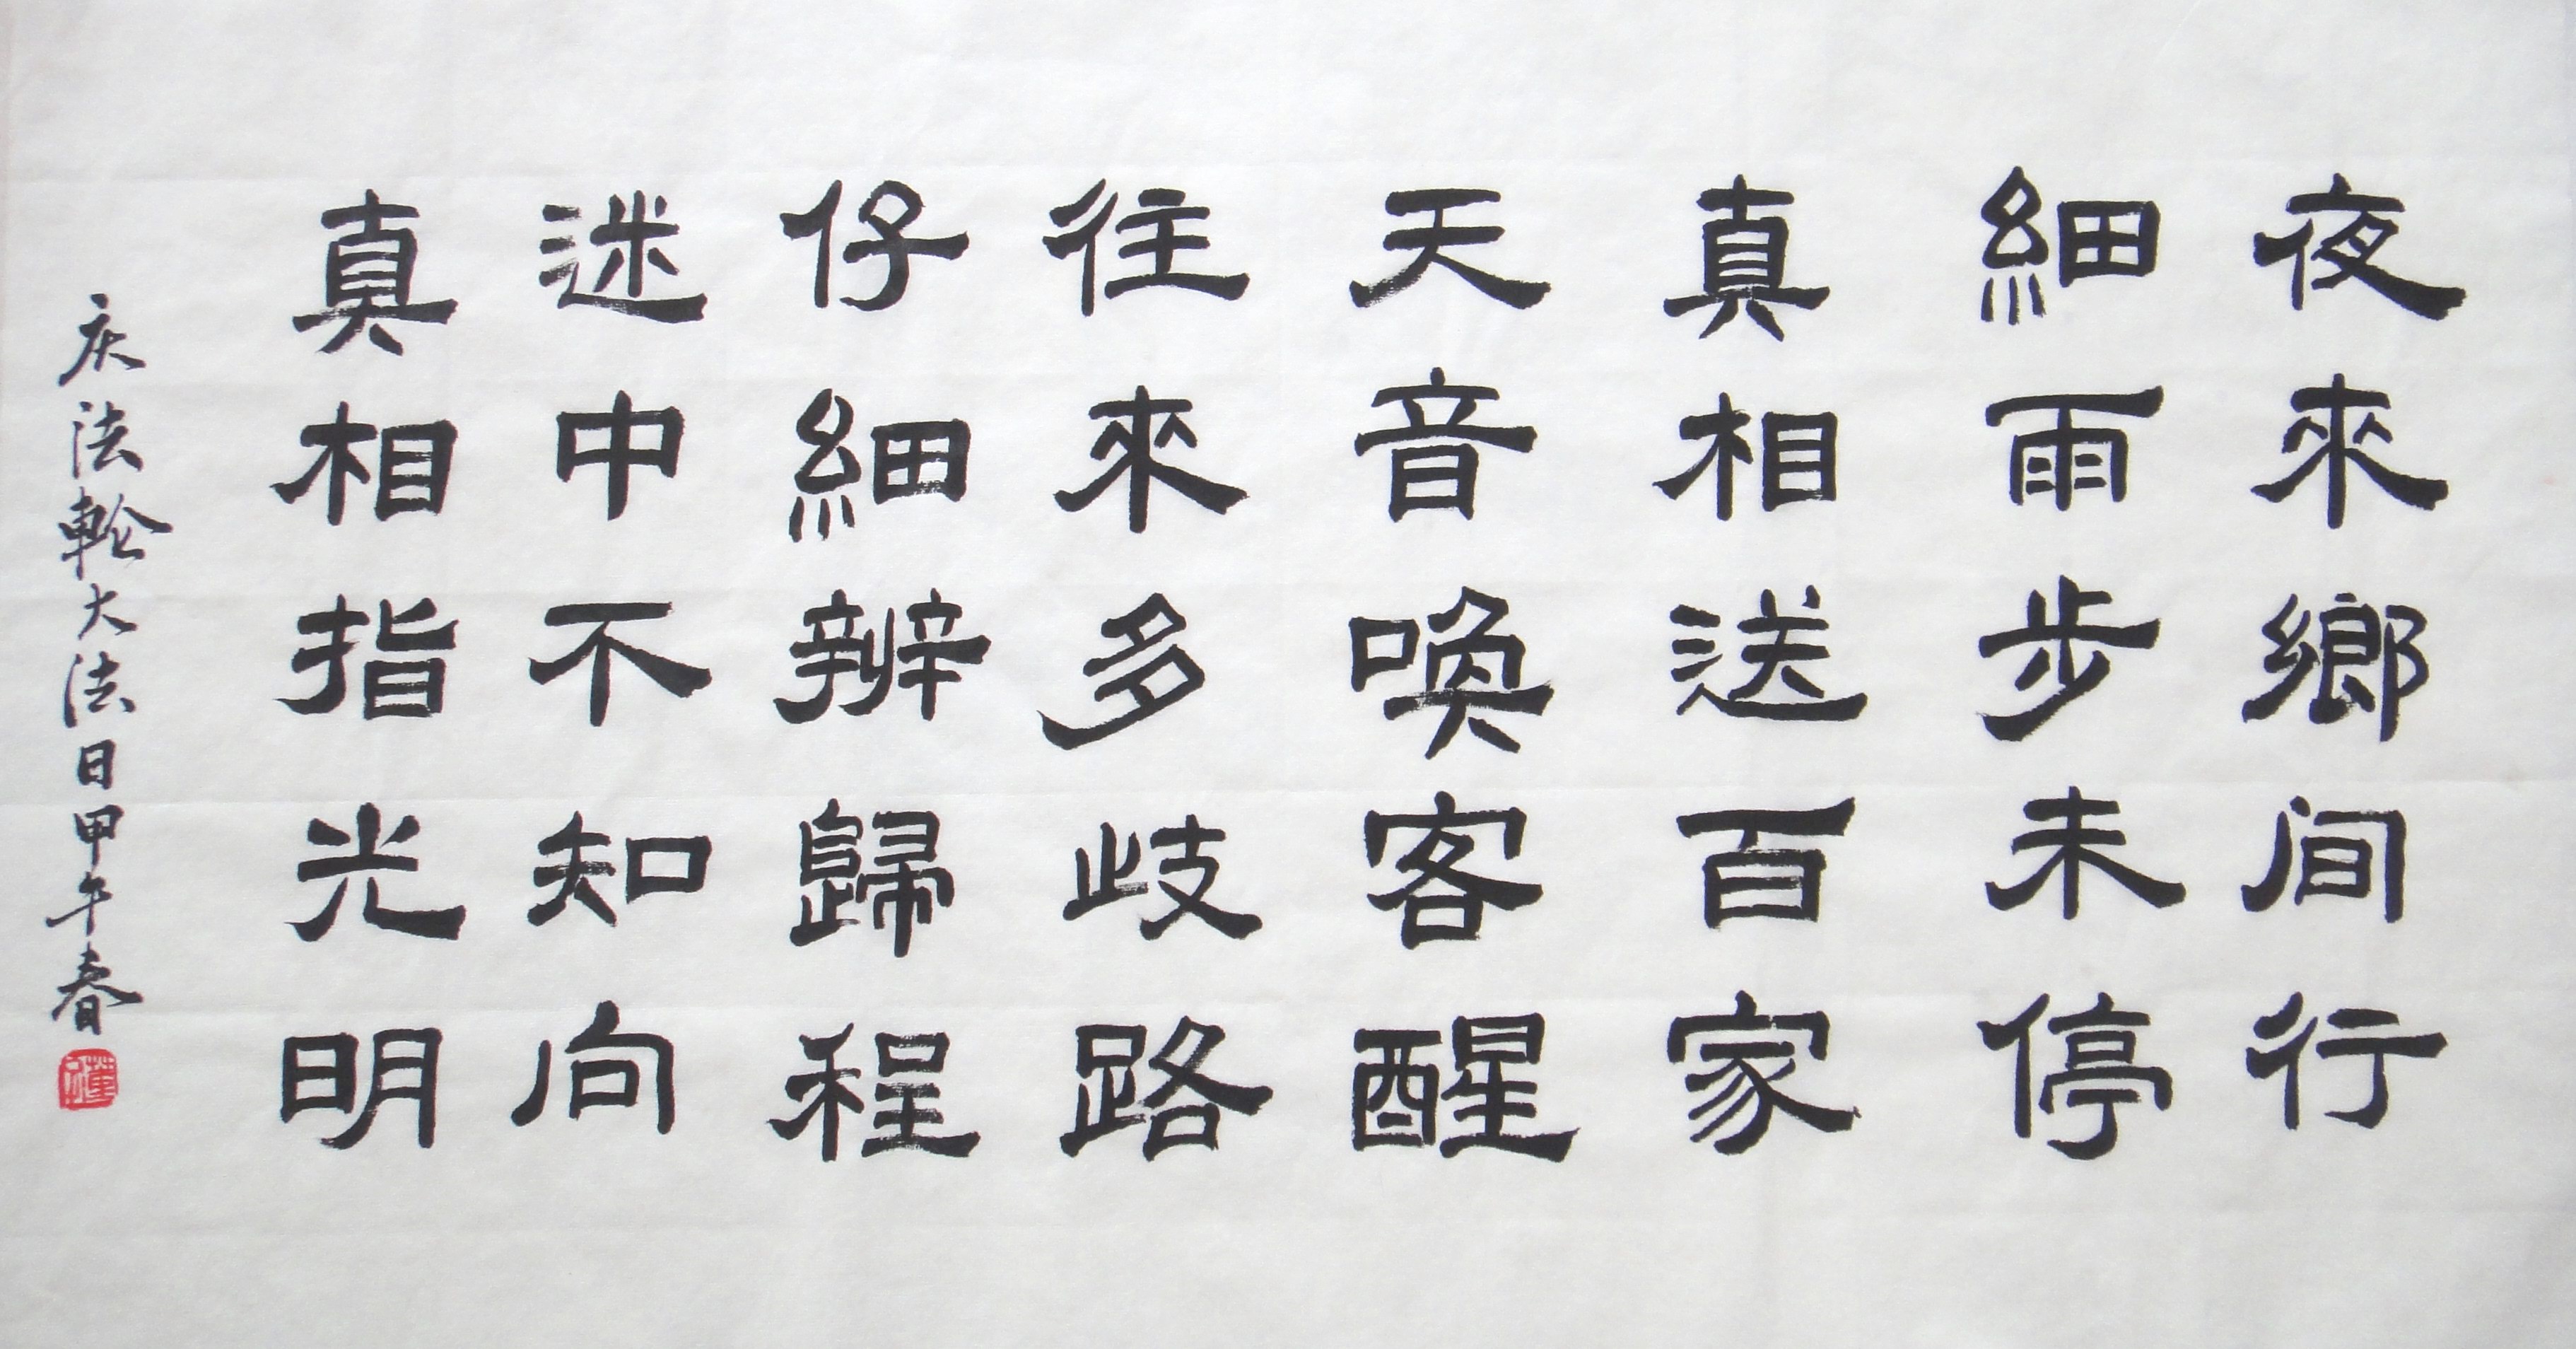 夜來鄉间行
細雨步未停
真相送百家
天音喚客醒
往來多歧路
仔細辨歸程
迷中不知向
真相指光明
庆法輪大法日甲午春